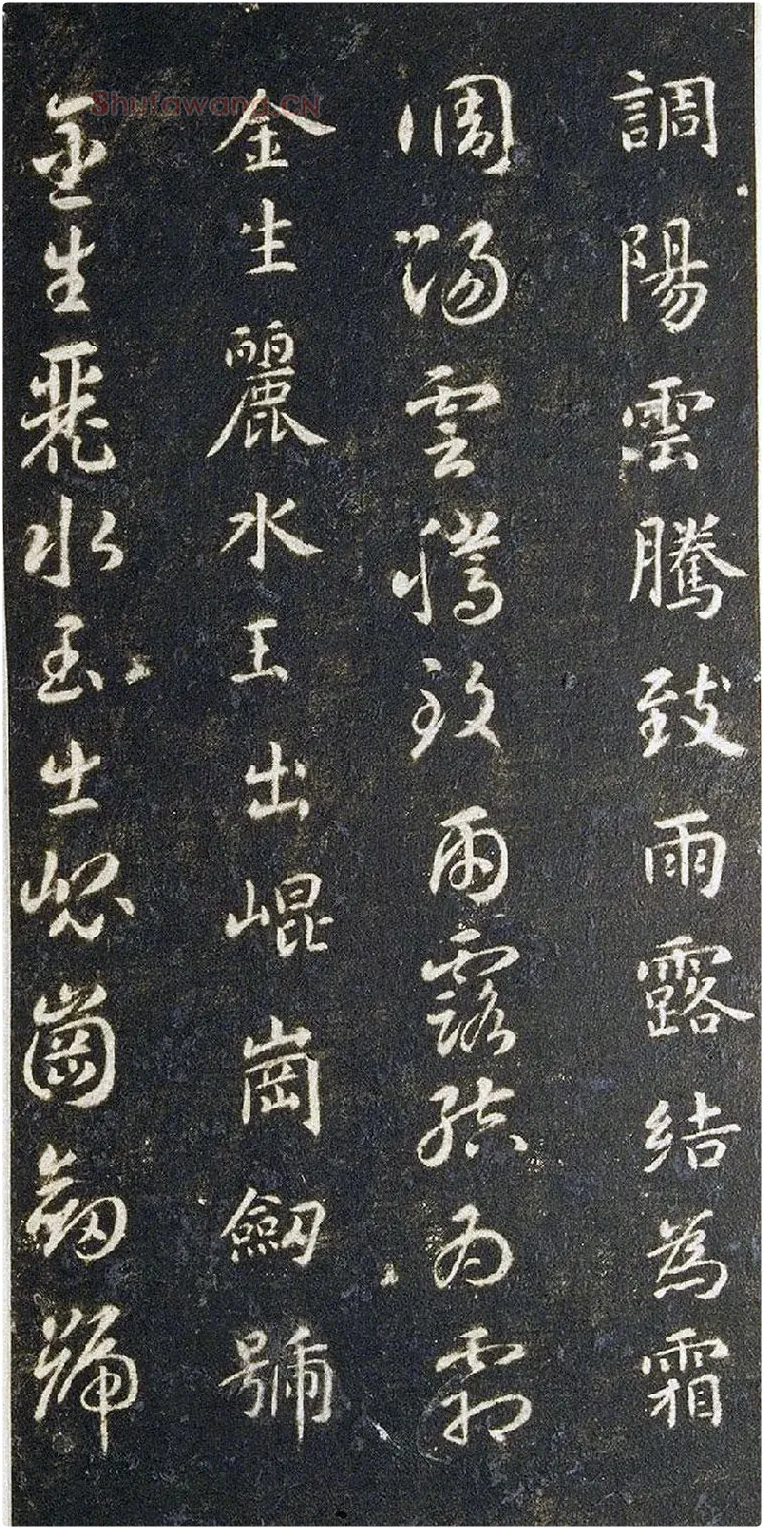 調陽雲騰致雨露結為霜
調陽雲騰致雨露結為霜
金生麗水玉出崐崗劒號
金生麗水玉出崐崗劒號
Shufawang.CN